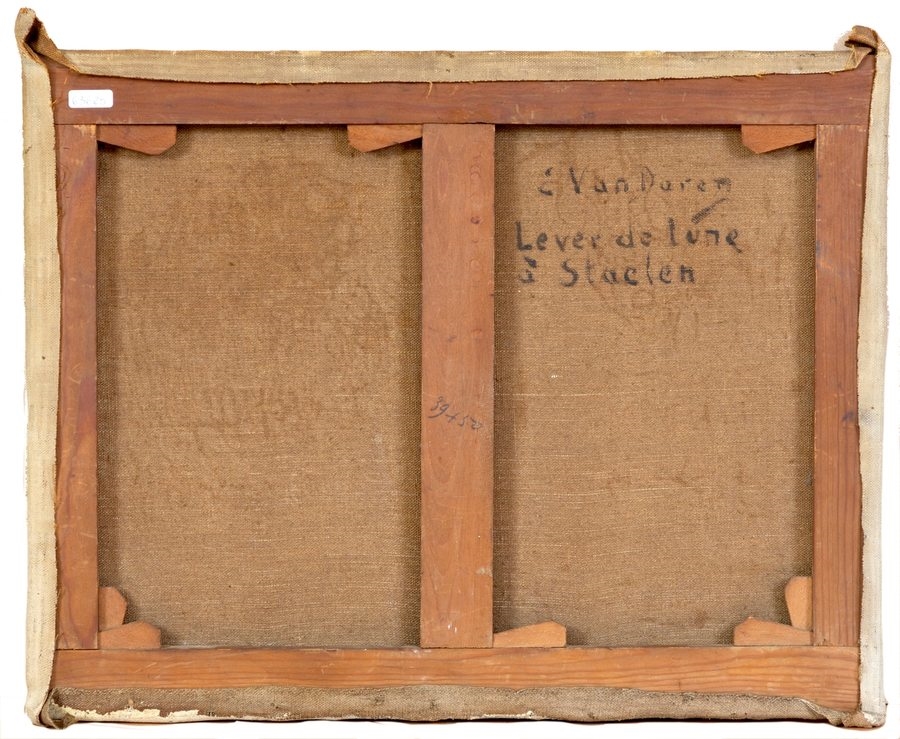 é Van Daren
Lever de lune
à Staelen
39+50